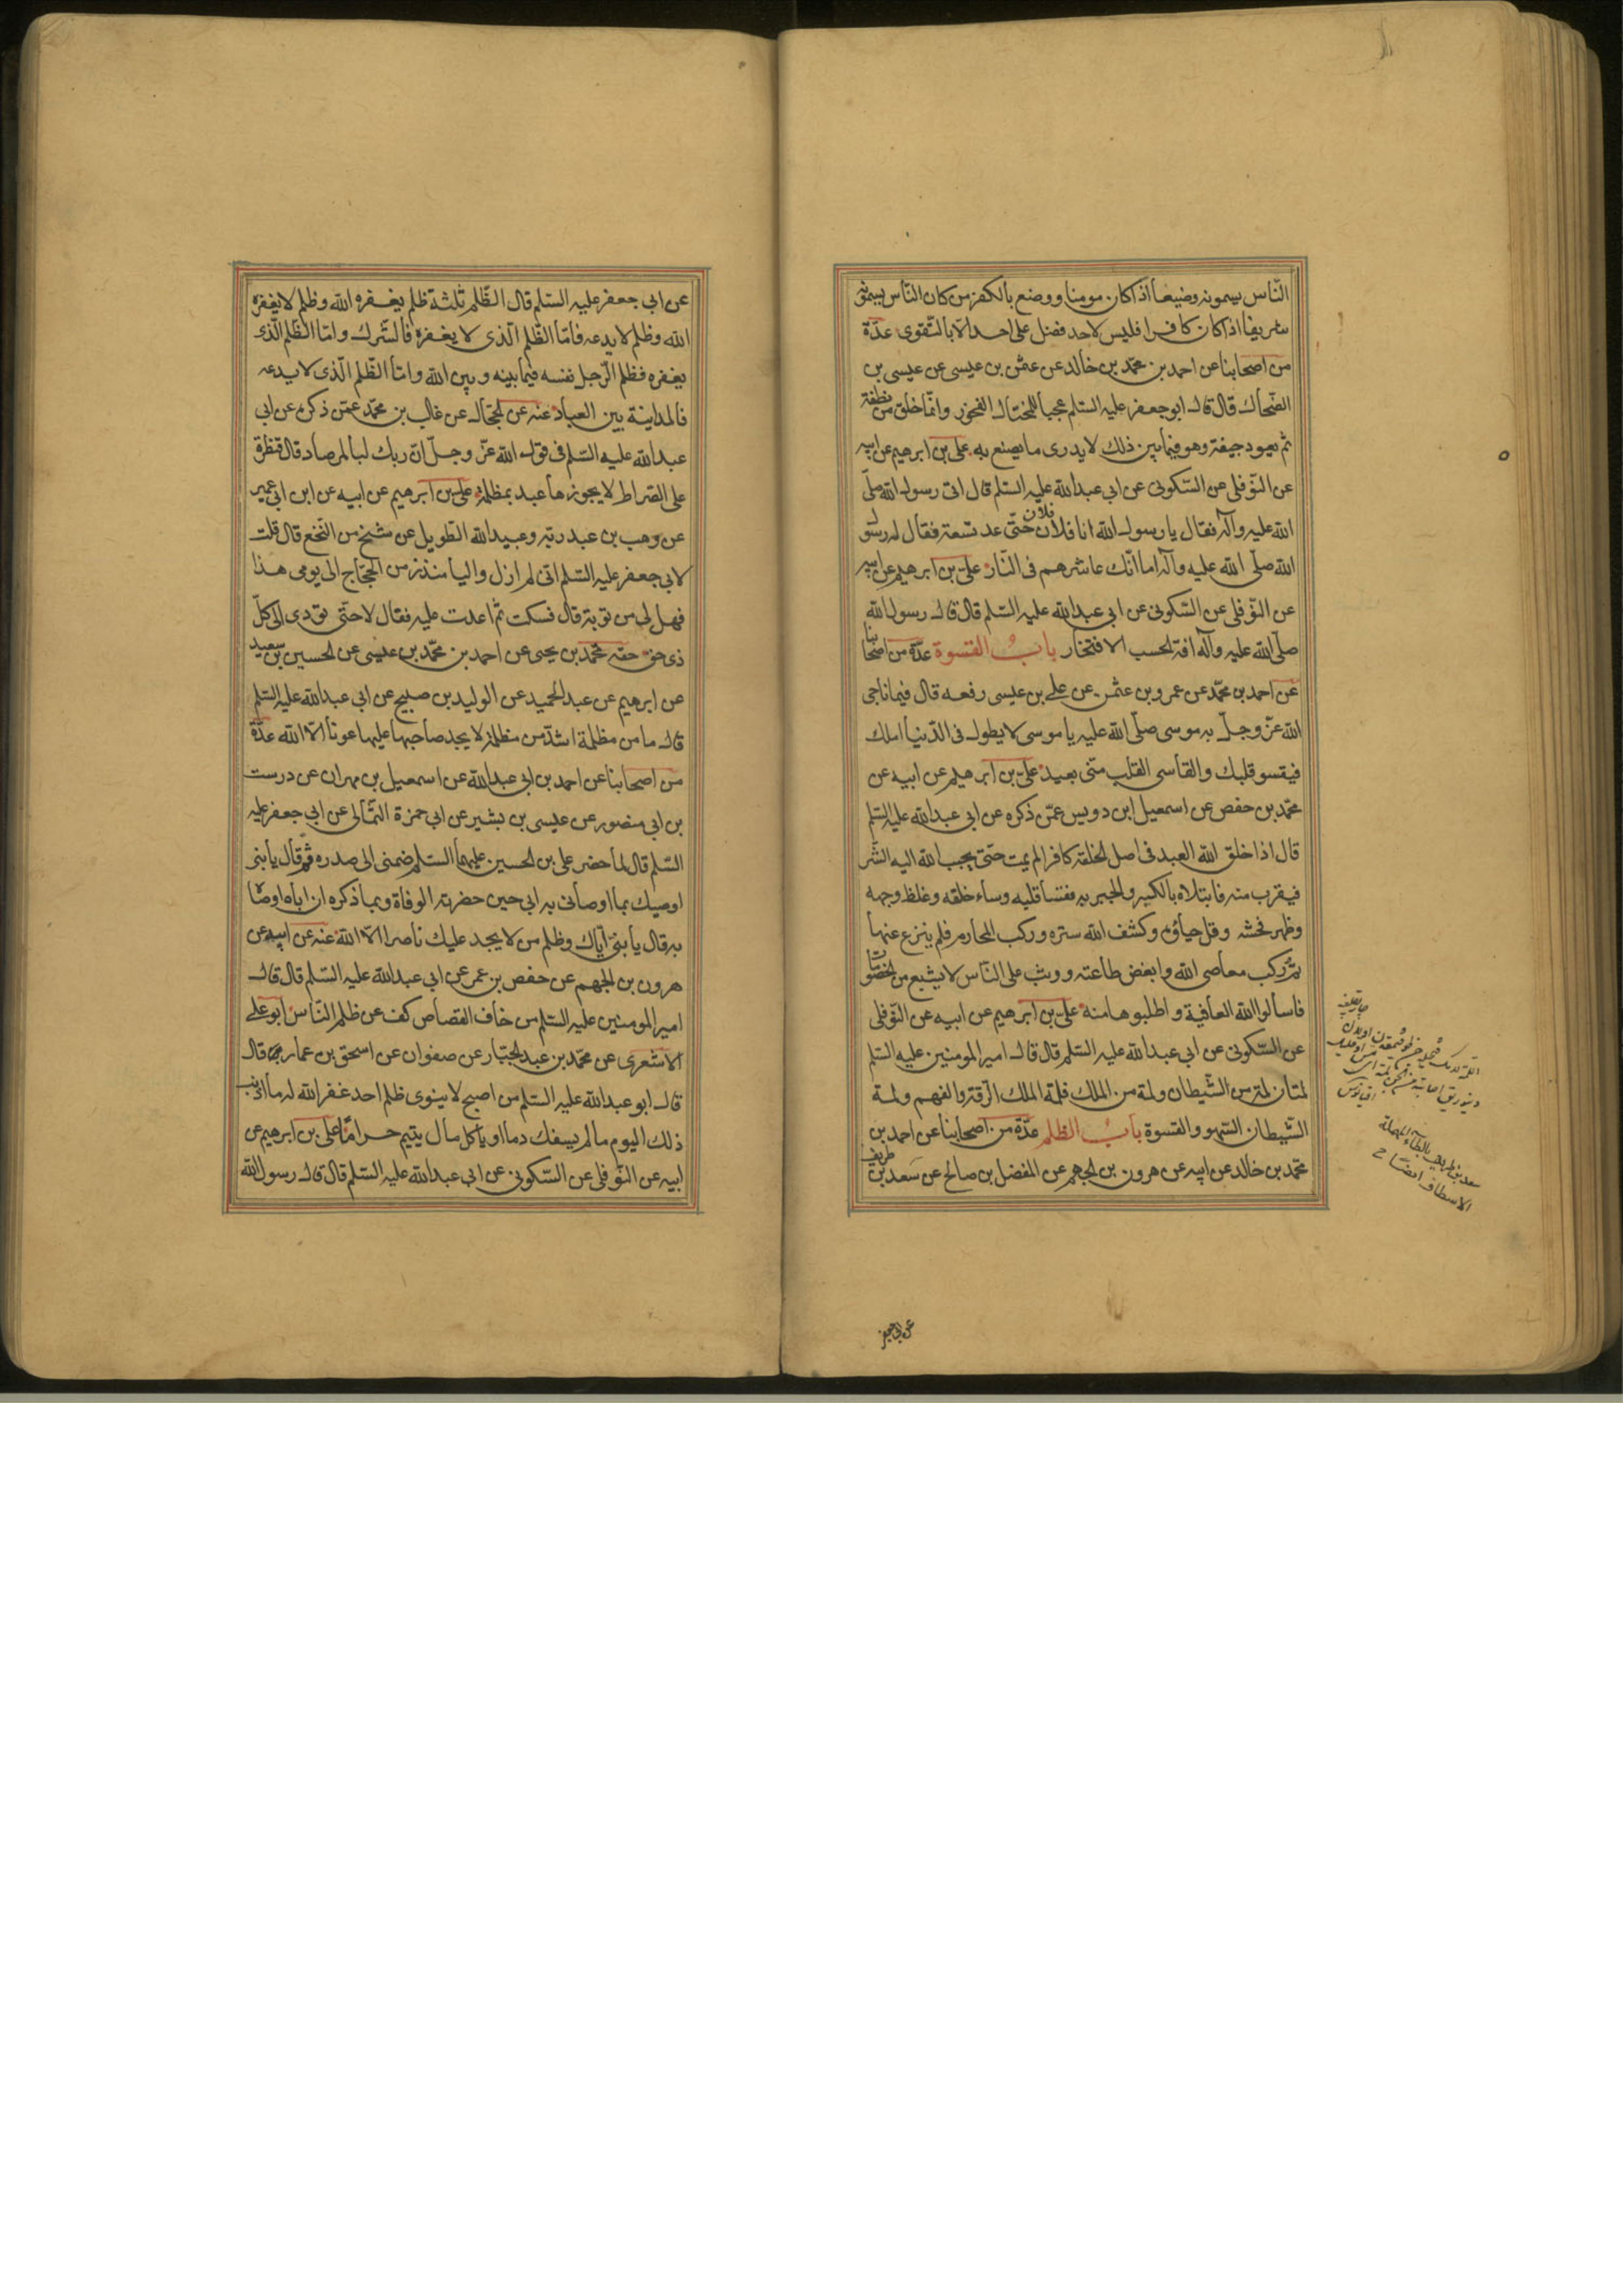 النّاس يسمونه وضيعا اذا كان مومنا ووضع بالكفر من كان النّاس يسمونه
شريفا اذا كان كافرا فليس لاحد فضل على احد الّا بالتّقوى عدّة
من اصحابنا عن احمد بن محمّد بن خالد عن عثمن بن عيسى عن عيسى بن
الضّحاك قال قال ابو جعفر عليه السّلم عجبا للمختال الفخور وانّما خلق من نطفة
ثم يعود جيفة وهو فيما بين ذلك لا يدرى ما يصنع به علىّ بن ابرهيم عن ابيه
عن النّوفلى عن السّكونى عن ابى عبدالله عليه السّلم قال اتى رسول الله صلّى
الله عليه وآله فقال يا رسول الله انا فلان بن فلان حتّى عد تسعة فقال له رسول
الله صلّى الله عليه وآله اما انّك عاشرهم فى النّار علىّ بن ابرهيم عن ابيه
عن النّوفلى عن السّكونى عن ابى عبدالله عليه السّلم قال قال رسول الله
صلّى الله عليه وآله افة الحسب الافتخار باب القسوة عدّة من اصحابنا
عن احمد بن محمّد عن عمرو بن عثمن عن على بن عيسى رفعه قال فيما ناجى
الله عزّ وجلّ به موسى صلّى الله عليه يا موسى لا يطول فى الدّنيا املك
فيقسو قلبك والقاسى القلب منّى بعيد علىّ بن ابرهيم عن ابيه عن
محمّد بن حفص عن اسمعيل ابن دويس عمّن ذكره عن ابى عبدالله عليه السّلم
قال اذا خلق الله العبد فى اصل الخلقة كافرا لم يمت حتّى يحبب الله اليه الشّر
فيقرب منه فابتلاه بالكبر والجبرية فقسا قلبه وساء خلقه وغلظ وجهه
وظهر فحشه وقل حياؤه وكشف الله ستره وركب المحارم فلم ينزع عنها
ثمّ ركب معاصى الله وابغض طاعته ووثب على النّاس لا يشبع من الخصومات
فاسألوا الله العافية واطلبوها منه علىّ بن ابرهيم عن ابيه عن النّوفلى
عن السّكونى عن ابى عبدالله عليه السّلم قال قال امير المومنين عليه السّلم
لمتان لمة من الشّيطان ولمة من الملك فلمة الملك الرّقة والفهم ولمة
الشّيطان السّهو والقسوة باب الظلم عدّة من اصحابنا عن احمد بن
محمّد بن خالد عن ابيه عن هرون بن الجهم عن المفضل بن صالح عن سعد بن طريف
سعد بن طريف بالطاء المهملة
عن ابى جعفر
عن ابى جعفر عليه السّلم قال الظّلم ثلثة ظلم يغفره الله وظلم لا يغفره
الله وظلم لا يدعه فأمّا الظّلم الّذى لا يغفره فالشّرك وامّا الظّلم الّذى
يغفره فظلم الرّجل نفسه فيما بينه وبين الله وامّا الظّلم الّذى لا يدعه
فالمداينة بين العباد عنه عن الحجّال عن غالب بن محمّد عمّن ذكره عن ابى
عبدالله عليه السّلم فى قول الله عزّ وجلّ انّ ربك لبالمرصاد قال قنطرة
على الصّراط لا يجوزها عبد بمظلمة علىّ بن ابرهيم عن ابيه عن ابن ابى عمير
عن وهب بن عبد ربّه وعبيدالله الطّويل عن شيخ من النّخع قال قلت
لابى جعفر عليه السّلم انّى لم ازل واليا منذ زمن الحجّاج الى يومى هذا
فهل لى من توبة قال فسكت ثم اعدت عليه فقال لا حتّى تودى الى كلّ
ذى حق حقه محمّد بن يحيى عن احمد بن محمّد بن عيسى عن الحسين بن سعيد
عن ابرهيم عن عبدالحميد عن الوليد بن صبيح عن ابى عبدالله عليه السّلم
قال ما من مظلمة اشدّ من مظلمة لا يجد صاحبها عليها عونا الّا الله عدّة
من اصحابنا عن احمد بن ابى عبدالله عن اسمعيل بن مهران عن درست
بن ابى منصور عن عيسى بن بشير عن ابى حمزة الثّمالى عن ابى جعفر عليه
السّلم قال لما حضر على بن الحسين عليهما السّلم ضمنى الى صدره ثمّ قال يا بنىّ
اوصيك بما اوصانى به ابى حين حضرته الوفاة وبما ذكره ان اباه اوصاه
به قال يا بنىّ ايّاك وظلم من لا يجد عليك ناصرا الّا الله عنه عن ابيه عن
هرون بن الجهم عن حفص بن عمر عن ابى عبدالله عليه السّلم قال قال
امير المومنين عليه السّلم من خاف القصاص كف عن ظلم النّاس ابو على
الاشعرى عن محمّد بن عبدالجبّار عن صفوان عن اسحق بن عمار قال
قال ابو عبدالله عليه السّلم من اصبح لا ينوى ظلم احد غفر الله له ما اذنب
ذلك اليوم ما لم يسفك دما او ياكل مال يتيم حراما علىّ بن ابرهيم عن
ابيه عن النّوفلى عن السّكونى عن ابى عبدالله عليه السّلم قال قال رسول الله